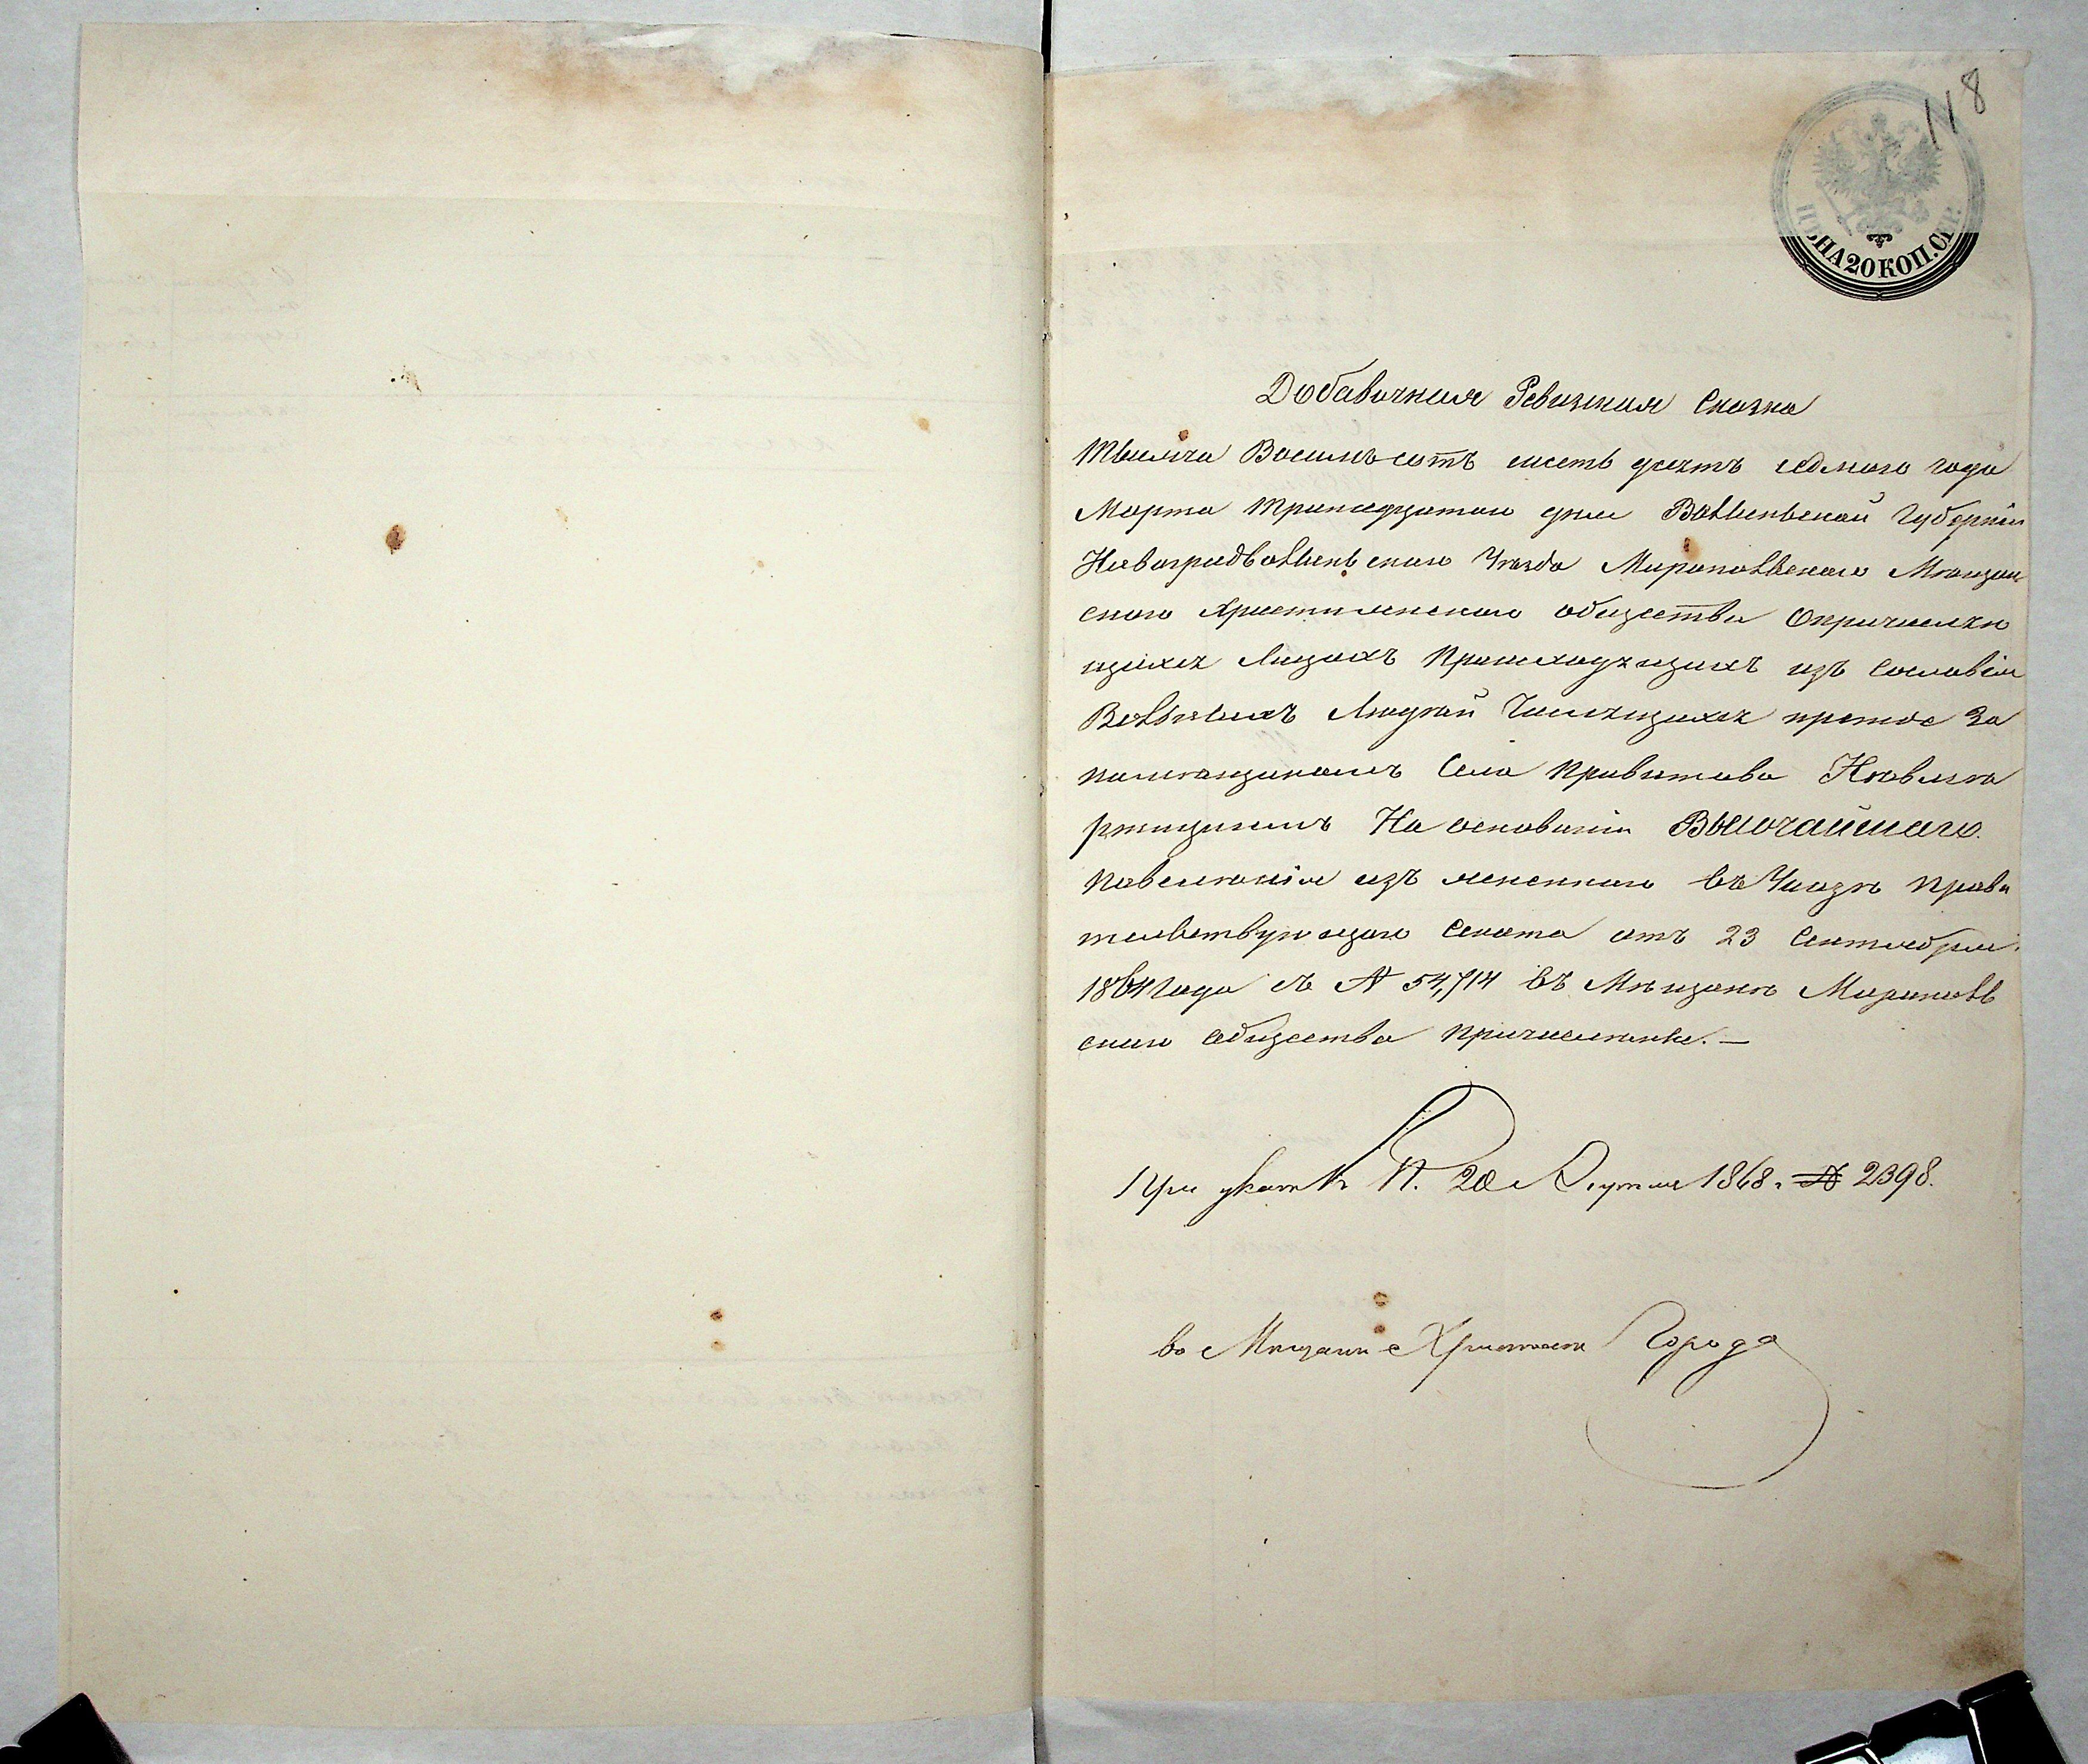 118
ЦѢНА 20 КОП. СЕР.
Добавочная Ревизская Сказка
Тысяча Восимьсотъ шесть десятъ седмаго года
Марта тринадцатаго дня Волынской Губерніи
Новоградволынскаго Уѣзда Миропольскаго Мѣщан
скаго Христианскаго общества О причисляю
щихся Лицахъ Происходящихъ изъ Сословія
Вольныхъ Людей Числящихся прежде За
помѣщикомъ Села Привитова
На основаніи Высочайшаго
Повелѣнія изъ ясненнаго въ Указѣ Прави
тельствующаго Сената отъ 23 Сентября
1864 года за № 54,714 въ Мѣщане Мирополь
скаго Общества Причисленные. —
При указѣ К. П. 20 1868 г. № 2398.
во Мѣщане Христіане Города